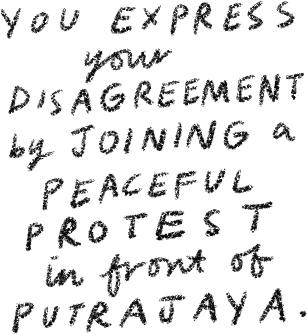 YOU EXPRESS
your
DISAGREEMENT
by JOINING a
PEACEFUL
PROTEST
in front of
PUTRAJAYA.